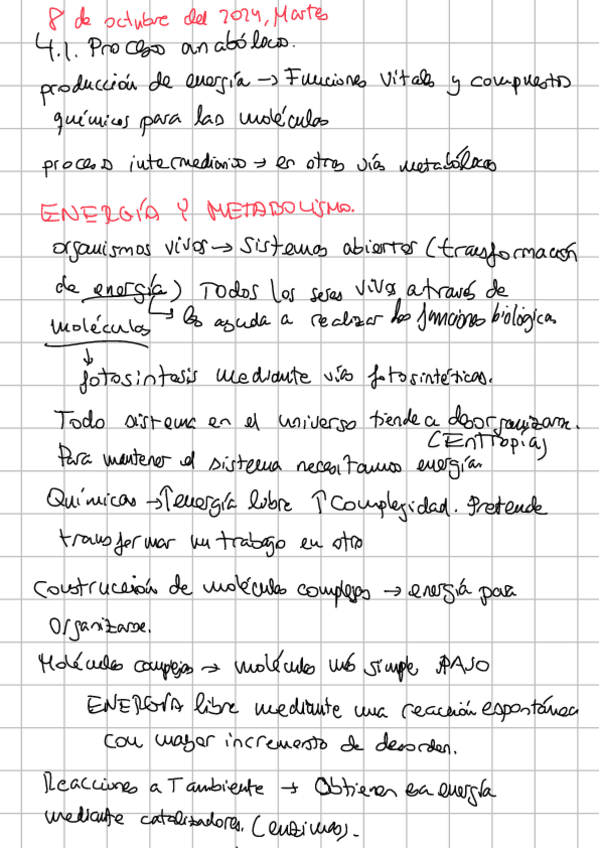 8 de octubre del 2024, Martes
4.1. Proceso anabólico.
producción de energía → Funciones vitales y compuestos
químicos para las moléculas
proceso intermediarios → en otras vías metabólicas
ENERGÍA Y METABOLISMO.
organismos vivos → Sistemas abiertos (transformación
de energía) Todos los seres vivos a través de
moléculas ↳ les ayuda a realizar las funciones biológicas
↓
fotosíntasis mediante vías fotosintéticas.
Todo sistema en el universo tiende a desorganizarse.
(Entropía)
Para mantener el sistema necesitamos energía.
Químicas → ↑energía libre ↑Complejidad. Pretende
transformar un trabajo en otro
Construcción de moléculas complejas → energía para
Organizarse.
Moléculas complejas → molécula más simple PASO
ENERGÍA libre mediante una reacción espontánea
con mayor incremento de desorden.
Reacciones a T ambiente → Obtienen esa energía
mediante catalizadores. (enzimas).